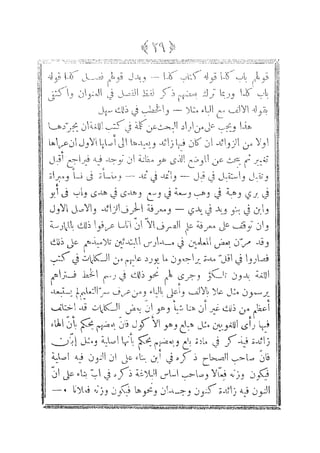 ﴿ ٢٩ ﴾
قولهم باب كذا قوله كتاب كذا — وبدل قولهم فصل كذا قوله
باب كذا وربما ترك بعضهم ذكر لفظ الفصل في العنوان واكتفى
بقوله الالف مع الباء مثلا — والخطب في ذلك سهل
هذا ويجب على من اراد البحث عن كلمة في كتب اللغة ان يجردها
اولا من الزوائد ان كان فيها زائد ويعيدها الى أصلها الاول ان عراها
تغيير ثم يبحث عن الموضع الذي هو مظنة ان توجد فيه فيراجع أقبل
وتقبل واستقبل في قبل — وامد في مد — ومنسأة في نسأ ومبراة
في بري وهبة في وهب وسعة في وسع وهدى في هدى وأب في أبو
وابن في بنو ويد في يدي — ومعرفة الحرف الزائد والاصل الاول
وان توقف على معرفة علم الصرف الا ان اناسا عرفوا ذلك بالممارسة
وقد مرّن بعض المعلمين في مدارس المبتدئين تلاميذهم على ذلك
فصاروا في اقل مدة يراجعون ما يورد عليهم من الكلمات في كتب
اللغة بدون تلكؤ وجرى لهم نحو ذلك في رسم الخط فتراهم
يرسمون مثل علا بالالف وأعلى بالياء ومن عرف سر التعليم لم يستبعد
أعظم من ذلك غير أن هنا شيأ وهو ان بعض الكلمات قد اختلف
فيها رأى اللغويين مثل هبلع وهو الأكول فان بعضهم يحكم بأن الهاء
زائدة فيذكره في مادة بلع وبعضهم يحكم بأنها اصلية ومثل إبّان
فان صاحب الصحاح ذكره في أبن بناء على ان النون فيه اصلية
فيكون وزنه فعّالا وصاحب اساس البلاغة ذكره في ابّ بناء على انّ
النون فيه زائدة كنون وجدان ونحوها فيكون وزنه فعلانا